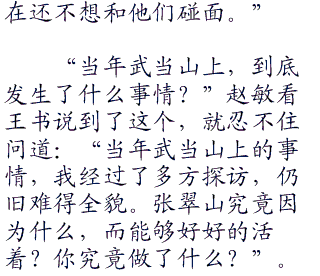 在还不想和他们碰面。”
“当年武当山上，到底
发生了什么事情？”赵敏看
王书说到了这个，就忍不住
问道：“当年武当山上的事
情，我经过了多方探访，仍
旧难得全貌。张翠山究竟因
为什么，而能够好好的活
着？你究竟做了什么？”。